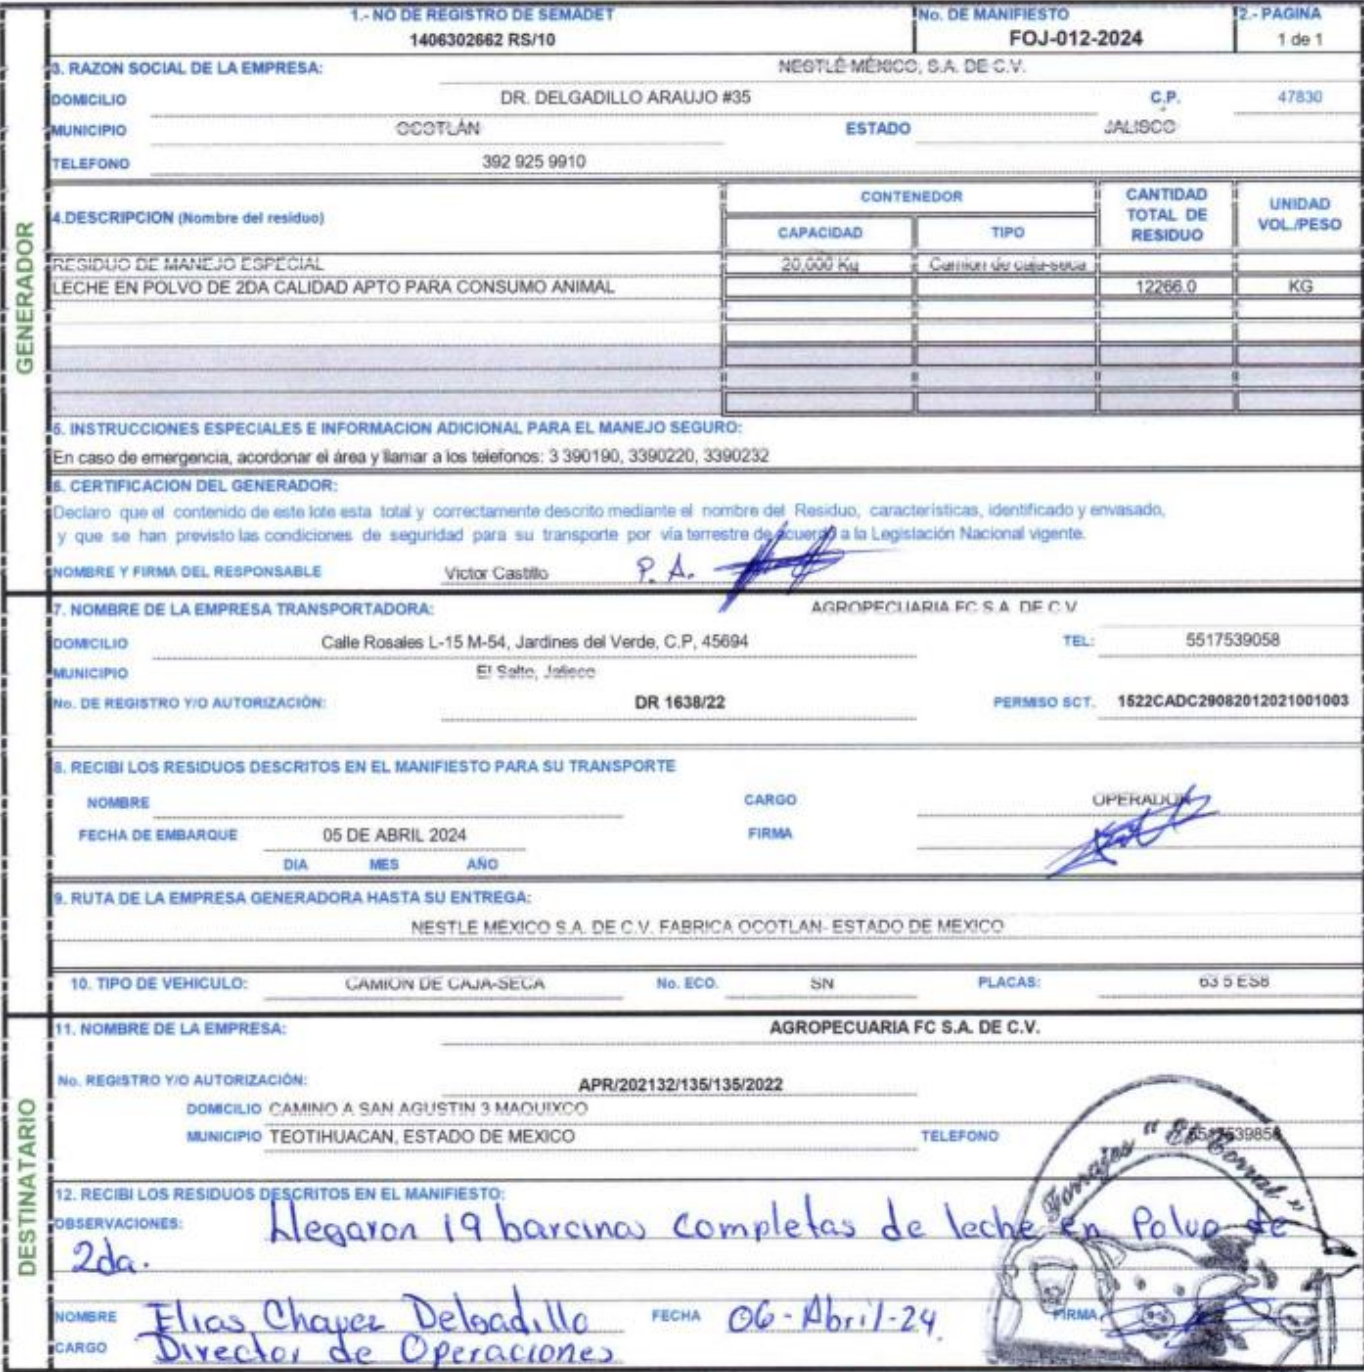 1.- NO DE REGISTRO DE SEMADET No. DE MANIFIESTO 2.- PAGINA
1406302662 RS/10 FOJ-012-2024 1 de 1
GENERADOR
3. RAZON SOCIAL DE LA EMPRESA: NESTLÉ MÉXICO, S.A. DE C.V.
DOMICILIO DR. DELGADILLO ARAUJO #35 C.P. 47830
MUNICIPIO OCOTLÁN ESTADO JALISCO
TELEFONO 392 925 9910
4.DESCRIPCION (Nombre del residuo) CONTENEDOR CANTIDAD TOTAL DE RESIDUO UNIDAD VOL./PESO
CAPACIDAD TIPO
RESIDUO DE MANEJO ESPECIAL 20,000 Kg Camion de caja-seca
LECHE EN POLVO DE 2DA CALIDAD APTO PARA CONSUMO ANIMAL 12266.0 KG
5. INSTRUCCIONES ESPECIALES E INFORMACION ADICIONAL PARA EL MANEJO SEGURO:
En caso de emergencia, acordonar el área y llamar a los telefonos: 3 390190, 3390220, 3390232
6. CERTIFICACION DEL GENERADOR:
Declaro que el contenido de este lote esta total y correctamente descrito mediante el nombre del Residuo, características, identificado y envasado,
y que se han previsto las condiciones de seguridad para su transporte por vía terrestre de acuerdo a la Legislación Nacional vigente.
NOMBRE Y FIRMA DEL RESPONSABLE Victor Castillo P. A.
7. NOMBRE DE LA EMPRESA TRANSPORTADORA: AGROPECUARIA FC S.A. DE C.V
DOMICILIO Calle Rosales L-15 M-54, Jardines del Verde, C.P, 45694 TEL: 5517539058
MUNICIPIO El Salto, Jalisco
No. DE REGISTRO Y/O AUTORIZACIÓN: DR 1638/22 PERMISO SCT. 1522CADC29082012021001003
8. RECIBI LOS RESIDUOS DESCRITOS EN EL MANIFIESTO PARA SU TRANSPORTE
NOMBRE CARGO OPERADOR
FECHA DE EMBARQUE 05 DE ABRIL 2024 FIRMA
DIA MES AÑO
9. RUTA DE LA EMPRESA GENERADORA HASTA SU ENTREGA:
NESTLE MÉXICO S.A. DE C.V. FABRICA OCOTLAN- ESTADO DE MEXICO
10. TIPO DE VEHICULO: CAMION DE CAJA-SECA No. ECO. SN PLACAS: 63 5 ES8
DESTINATARIO
11. NOMBRE DE LA EMPRESA: AGROPECUARIA FC S.A. DE C.V.
No. REGISTRO Y/O AUTORIZACIÓN: APR/202132/135/135/2022
DOMICILIO CAMINO A SAN AGUSTIN 3 MAQUIXCO
MUNICIPIO TEOTIHUACAN, ESTADO DE MEXICO TELEFONO
Forrajes "El Corral"
12. RECIBI LOS RESIDUOS DESCRITOS EN EL MANIFIESTO:
OBSERVACIONES: Llegaron 19 barcinas completas de leche en Polvo de
2da.
NOMBRE Elias Chavez Delgadillo FECHA 06-Abril-24. FIRMA
CARGO Director de Operaciones